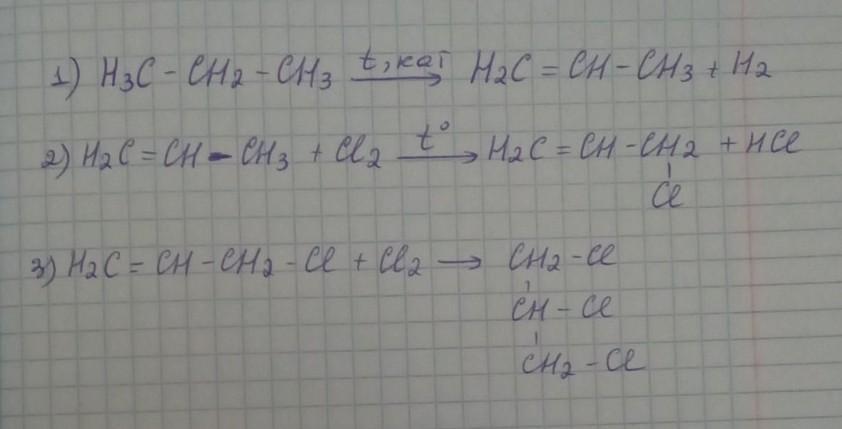 1) H3C - CH2 - CH3 t, кат → H2C = CH - CH3 + H2
2) H2C = CH - CH3 + Cl2 t° → H2C = CH - CH2 + HCl
Cl
3) H2C = CH - CH2 - Cl + Cl2 → CH2 - Cl
CH - Cl
CH2 - Cl